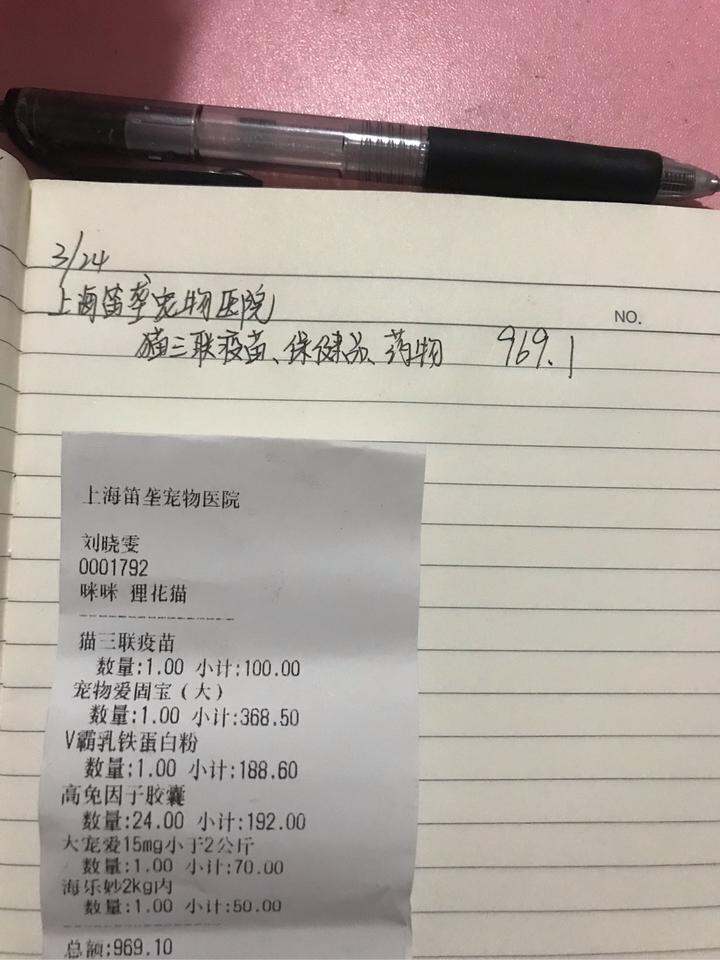 3/24
上海笛垄宠物医院
NO.
猫三联疫苗、保健品、药物 969.1
上海笛垄宠物医院
刘晓雯
0001792
咪咪 狸花猫
猫三联疫苗
数量:1.00 小计:100.00
宠物爱固宝(大)
数量:1.00 小计:368.50
V霸乳铁蛋白粉
数量:1.00 小计:188.60
高免因子胶囊
数量:24.00 小计:192.00
大宠爱15mg小于2公斤
数量:1.00 小计:70.00
海乐妙2kg内
数量:1.00 小计:50.00
总额:969.10